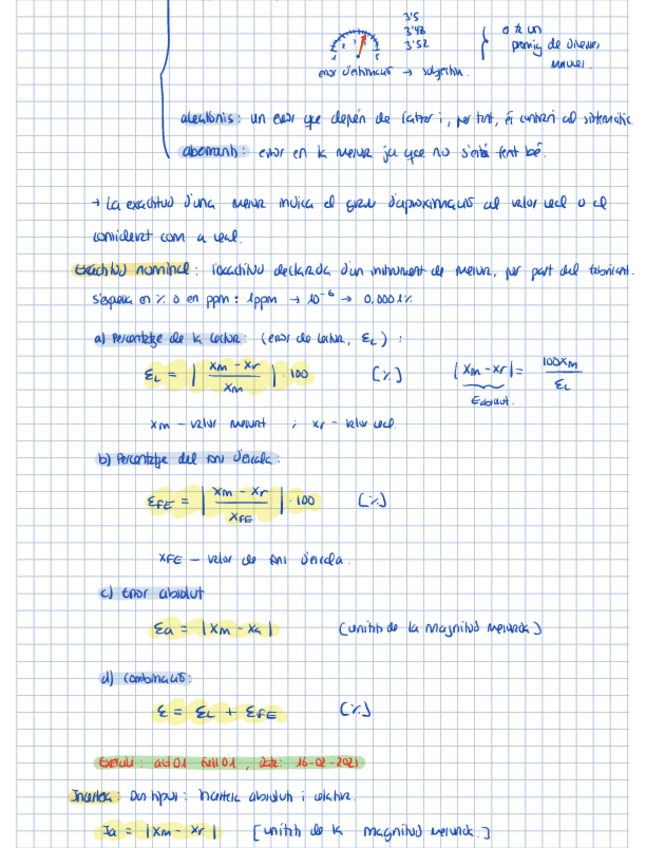 3'5
3'48
3'52
1 2 3 5
o fer un
promig de diverses
mesures.
error d'estimació → subjectiu.
aleatòris: un error que depèn de l'atzar i, per tant, és contrari al sistemàtic.
aberrants: error en la mesura ja que no s'està fent bé.
→ La exactitud d'una mesura indica el grau d'aproximació al valor real o el
considerat com a real.
Exactitud nominal: l'exactitud declarada d'un instrument de mesura, per part del fabricant.
S'expressa en % o en ppm: 1ppm → 10⁻⁶ → 0,0001%
a) Percentatge de la lectura: (error de lectura, εL):
εL = | xm - xr / xm | · 100 [%] |xm - xr| = 100xm / εL
Eabsolut.
xm - valor mesurat ; xr - valor real.
b) Percentatge del fons d'escala:
εFE = | xm - xr / xFE | · 100 [%]
xFE - valor de fons d'escala.
c) Error absolut
εa = |xm - xa| (unitats de la magnitud mesurada)
d) Combinació:
ε = εL + εFE [%]
Exercici: act 01 full 01, data: 16-02-2021
Incertesa: Dos tipus: incertesa absoluta i relativa.
Ia = |xm - xr| [unitats de la magnitud mesurada.]